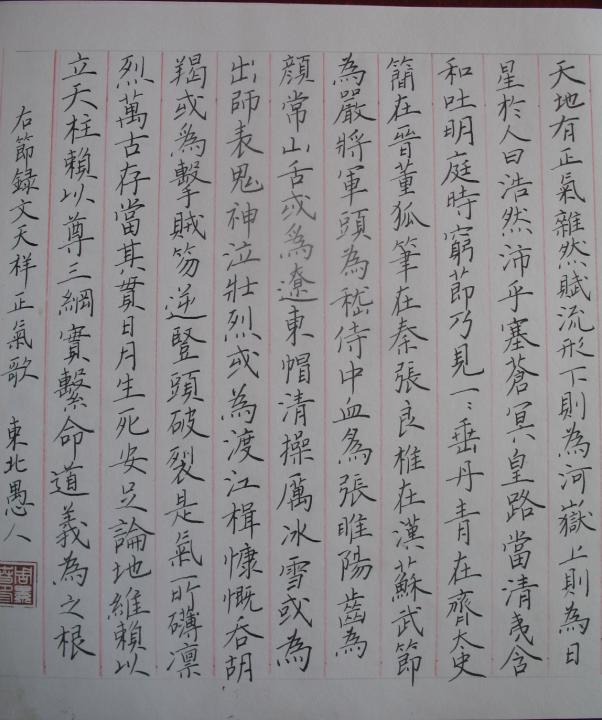 天地有正氣雜然賦流形下則為河嶽上則為日
星於人曰浩然沛乎塞蒼冥皇路當清夷含
和吐明庭時窮節乃見一〻垂丹青在齊太史
簡在晉董狐筆在秦張良椎在漢蘇武節
為嚴將軍頭為嵇侍中血為張睢陽齒為
顏常山舌或為遼東帽清操厲冰雪或為
出師表鬼神泣壯烈或為渡江楫慷慨吞胡
羯或為擊賊笏逆豎頭破裂是氣所礴凜
烈萬古存當其貫日月生死安足論地維賴以
立天柱賴以尊三綱實繫命道義為之根
右節録文天祥正氣歌 東北愚人